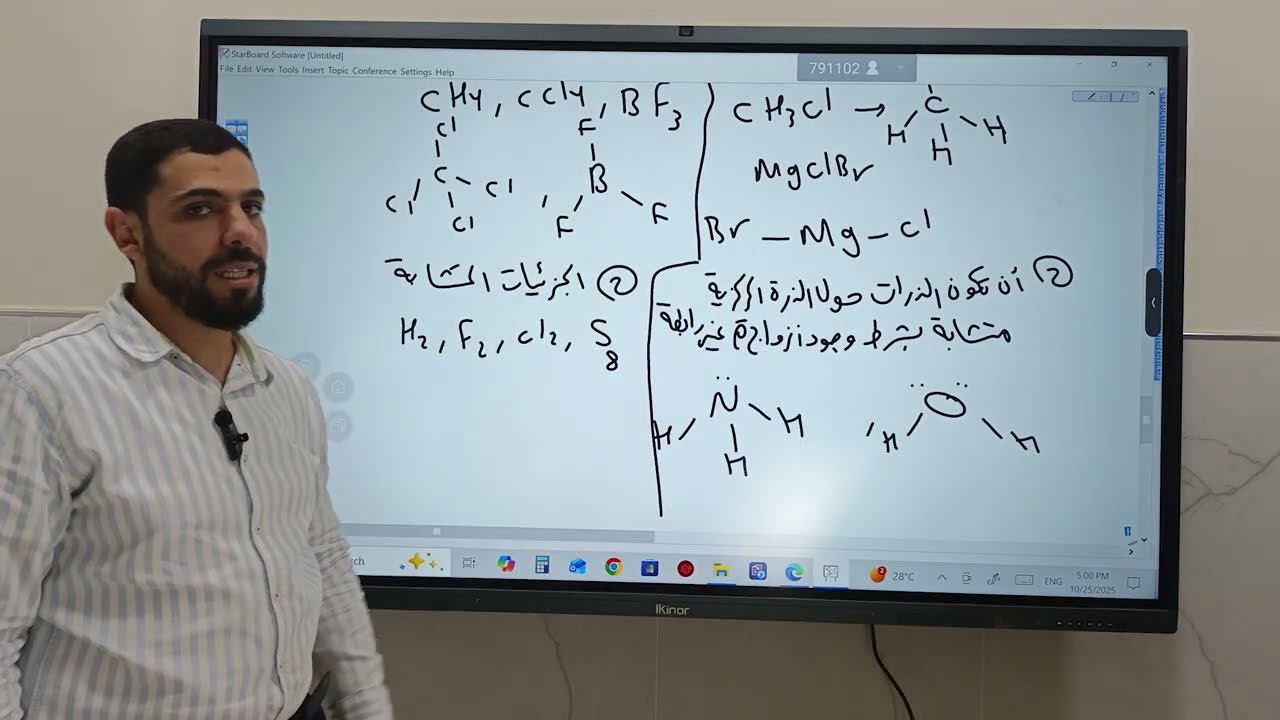 StarBoard Software [Untitled]
File Edit View Tools Insert Topic Conference Settings Help
791102
CH4, CCl4, BF3
Cl
C
Cl
Cl
Cl
F
B
F
F
② الجزئيات المتشابة
H2, F2, Cl2, S8
CH3Cl → C
H
H
H
MgClBr
Br – Mg – Cl
② أن تكون الذرات حول الذرة المركزية
متشابة بشرط وجود ازواج غير رابطة
N
H
H
H
O
H
H
rch
28°C
ENG
5:00 PM
10/25/2025
IKinor